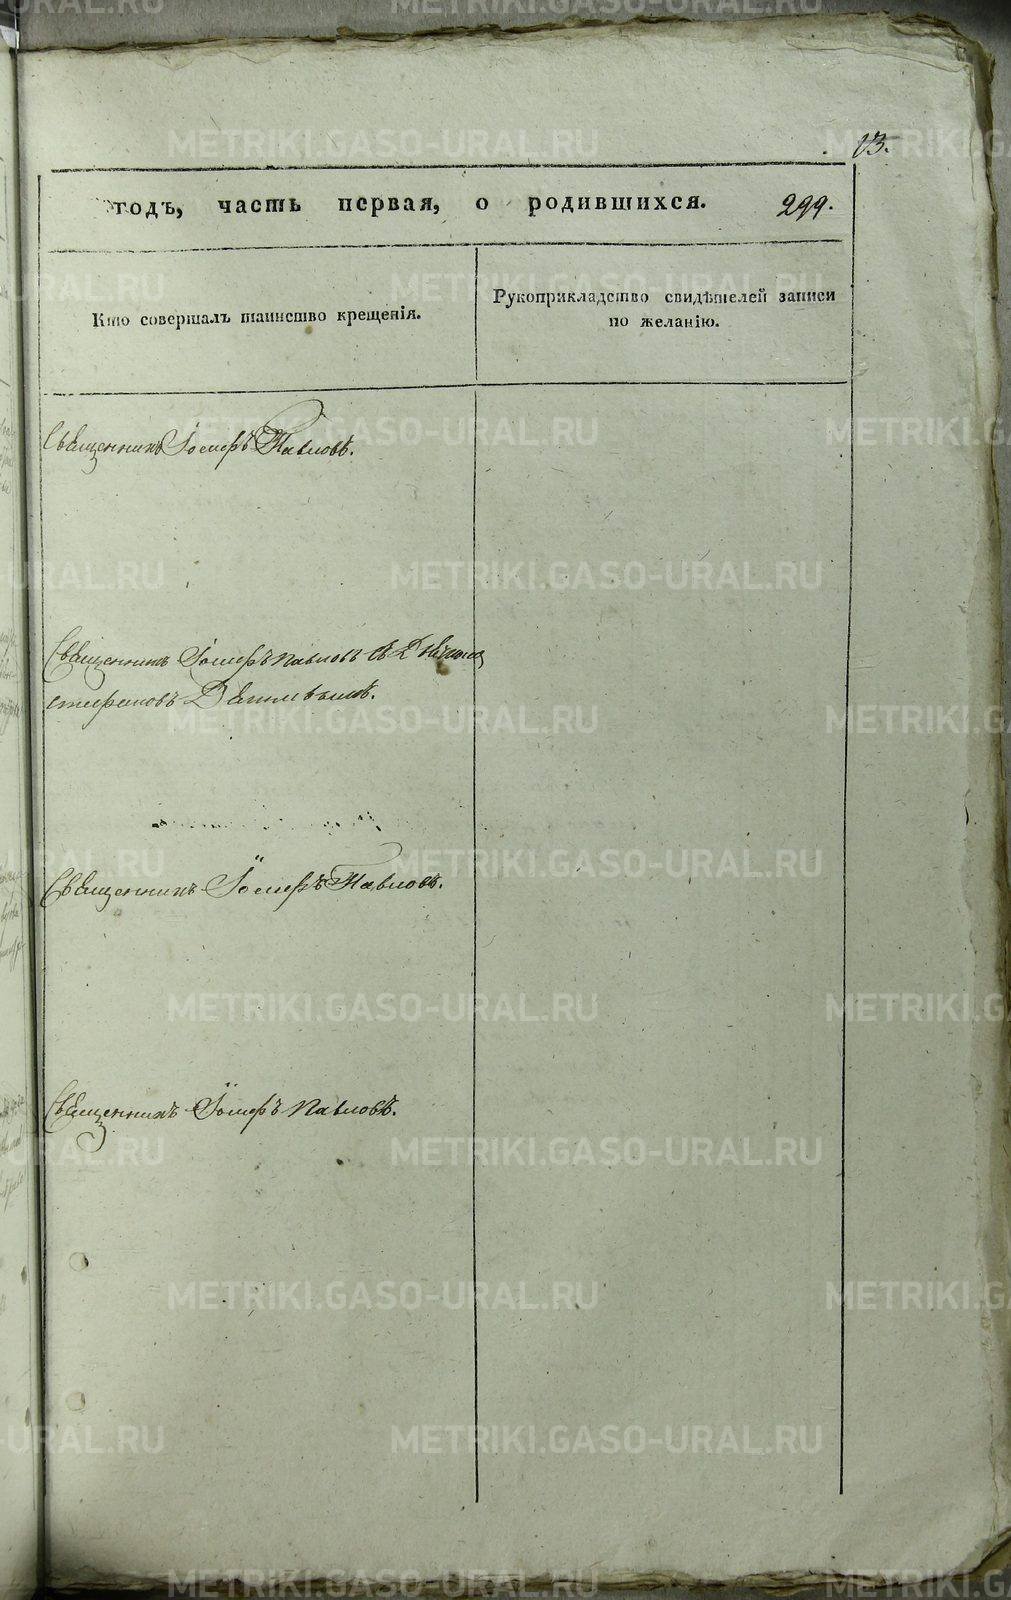 13.
годъ, часть первая, о родившихся. 299.
Кто совершалъ таинство крещенія.
Рукоприкладство свидѣтелей записи
по желанію.
Священникъ Іосифъ Павловъ.
Священникъ Іосифъ Павловъ съ
Священникъ Іосифъ Павловъ.
Священникъ Іосифъ Павловъ.
METRIKI.GASO-URAL.RU